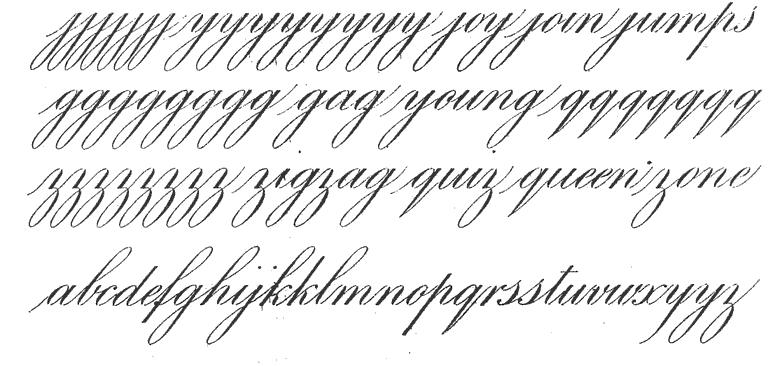 jjjjjjj yyyyyyyy joy join jumps
gggggggg gag young qqqqqqq
zzzzzzz zigzag quiz queen zone
abcdefghijkklmnopqrsstuvwxyyz